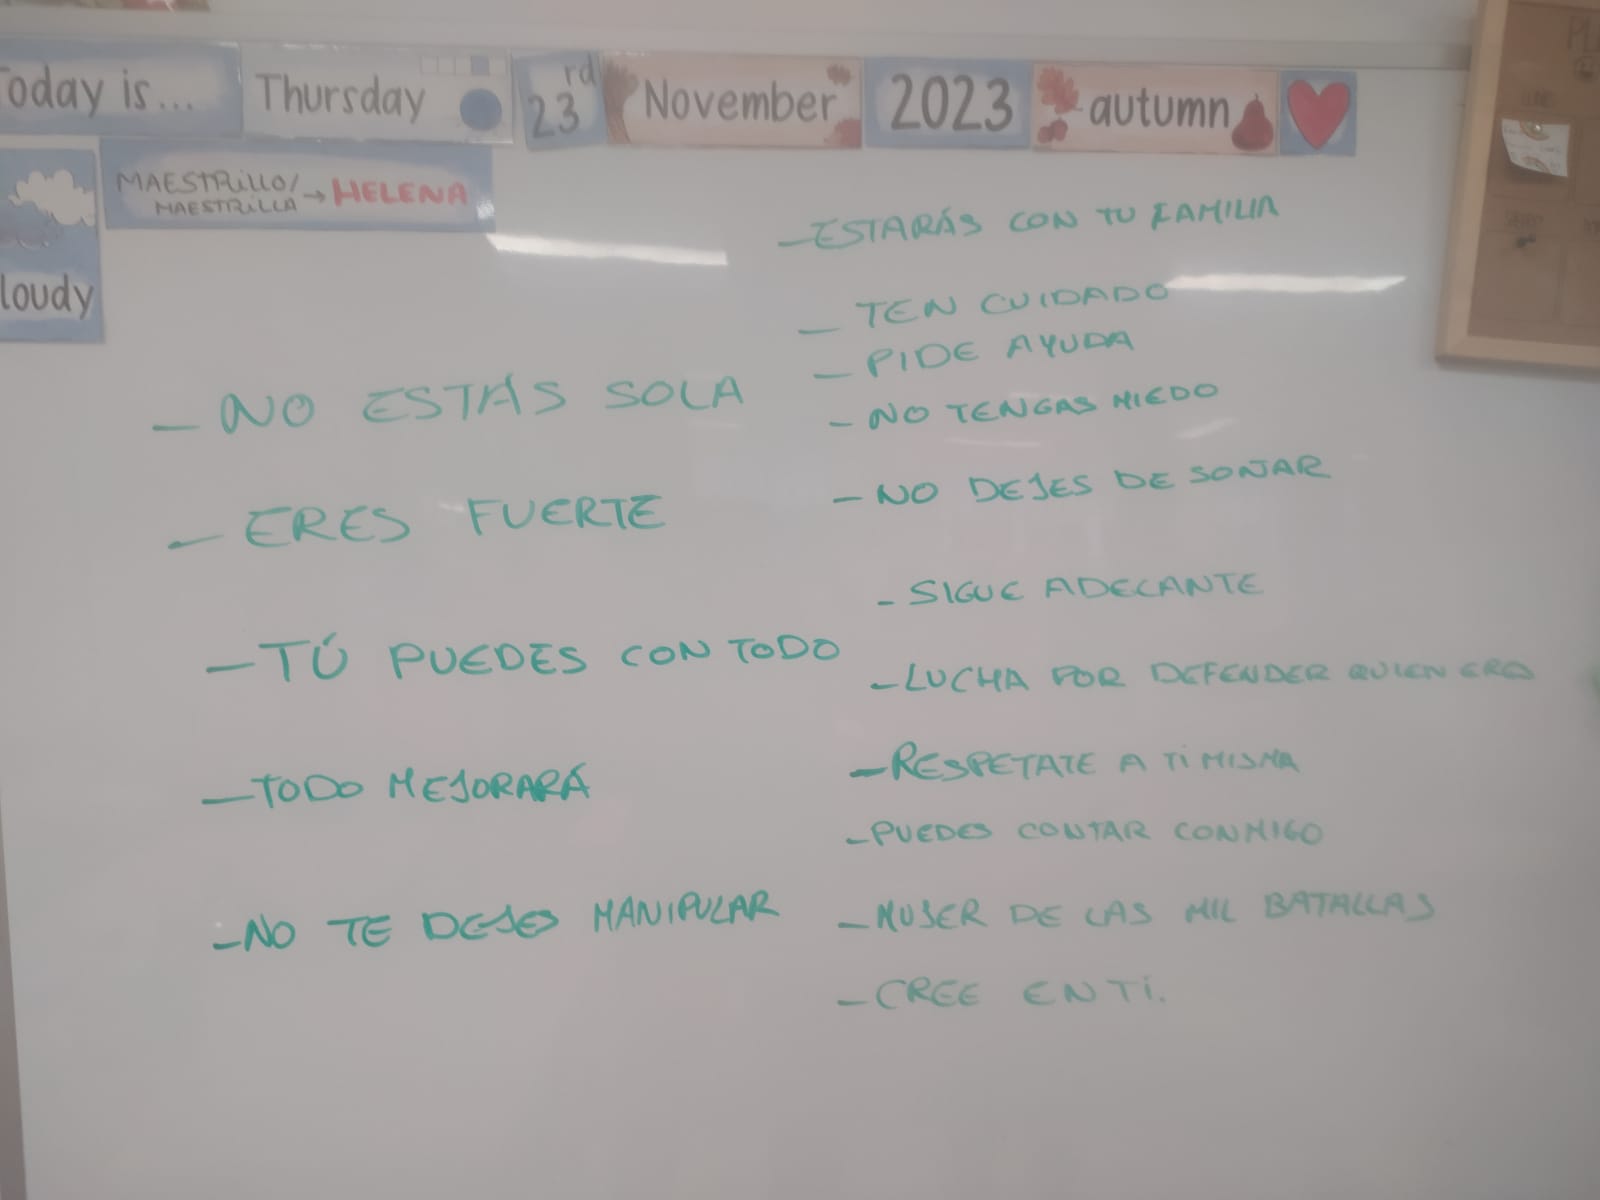 oday is...
Thursday
23rd
November
2023
autumn
loudy
MAESTRILLO/
MAESTRILLA → HELENA
- NO ESTÁS SOLA
- ERES FUERTE
- TÚ PUEDES CON TODO
- TODO MEJORARÁ
- NO TE DEJES MANIPULAR
- ESTARÁS CON TU FAMILIA
- TEN CUIDADO
- PIDE AYUDA
- NO TENGAS MIEDO
- NO DEJES DE SOÑAR
- SIGUE ADELANTE
- LUCHA POR DEFENDER QUIEN ERES
- RESPETATE A TI MISMA
- PUEDES CONTAR CONMIGO
- MUJER DE LAS MIL BATALLAS
- CREE EN TI.